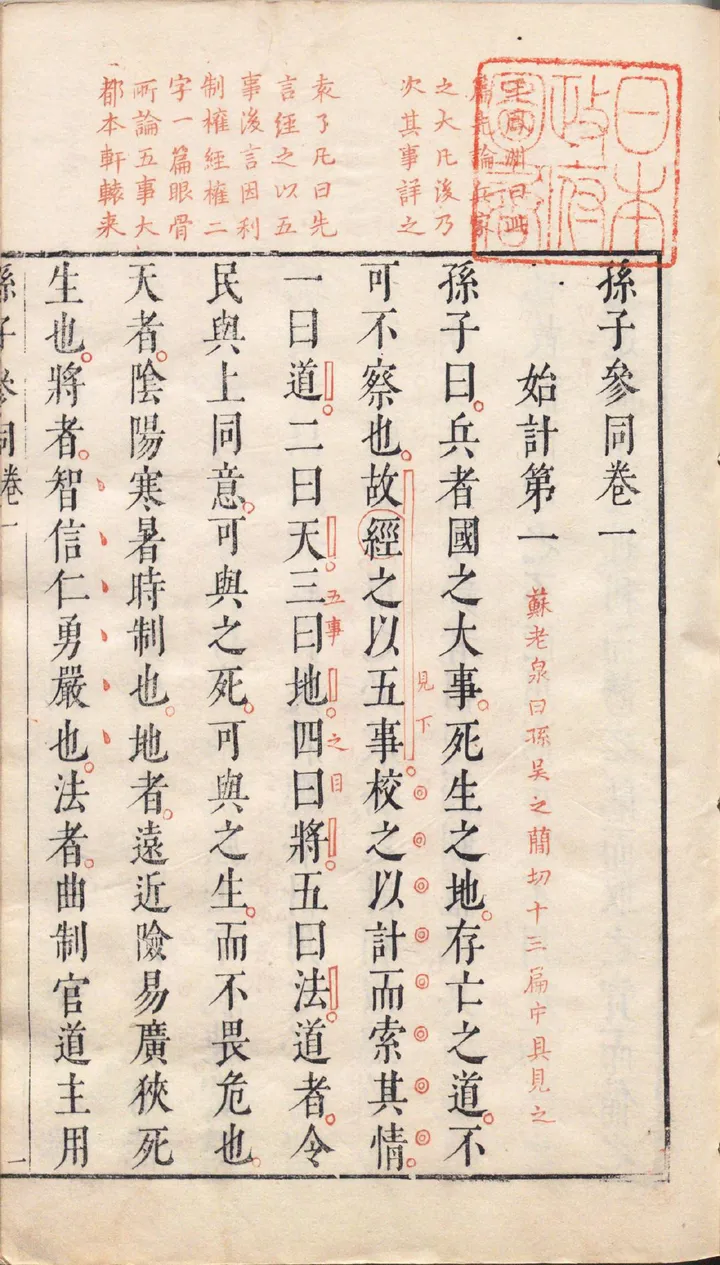 日本
政府
圖書
王鳳洲曰此
篇先論兵家
之大凡後乃
次其事詳之
袁了凡曰先
言經之以五
事後言因利
制權經權二
字一篇眼骨
所論五事大
都本軒轅来
孫子參同卷一
始計第一
蘇老泉曰孫吳之簡切十三篇中具見之
孫子曰。兵者國之大事。死生之地。存亡之道。不
可不察也。故經之以五事。校之以計而索其情。
見下
一曰道。二曰天。三曰地。四曰將。五曰法。道者。令
五事之目
民與上同意。可與之死。可與之生。而不畏危也。
天者。陰陽寒暑時制也。地者。遠近險易廣狹死
生也。將者。智信仁勇嚴也。法者。曲制官道主用
孫子參同卷一
一